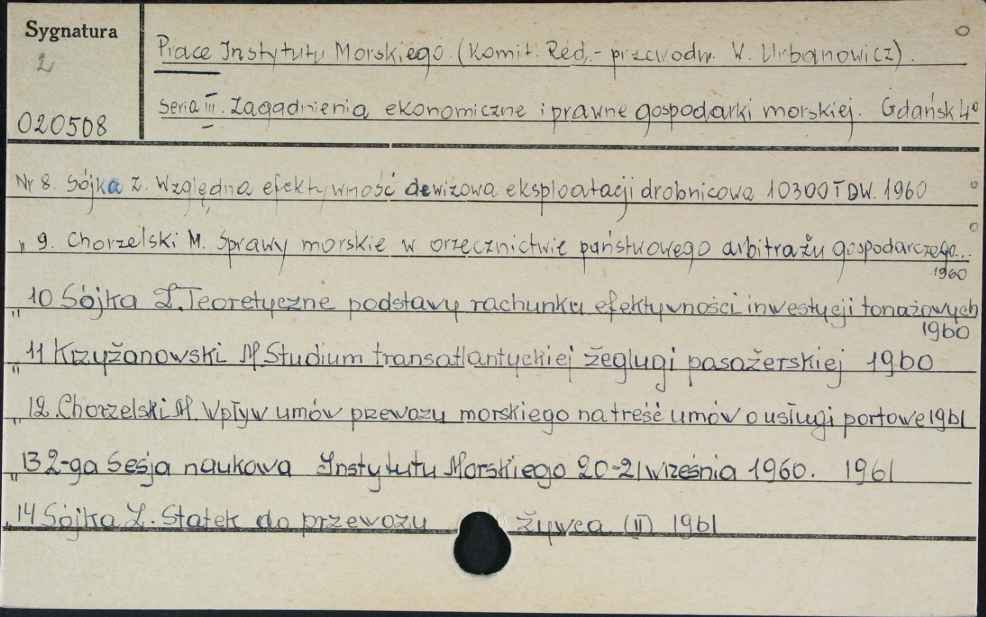 Sygnatura
2
020508
Prace Instytutu Morskiego. (Komit. Red.- przewodn. W. Urbanowicz).
Seria III. Zagadnienia ekonomiczne i prawne gospodarki morskiej. Gdańsk 4°
Nr 8. Sójka Z. Względna efektywność dewizowa eksploatacji drobnicowa 10300 TDW. 1960
" 9. Chorzelski M. Sprawy morskie w orzecznictwie państwowego arbitrażu gospodarczego...
1960
" 10 Sójka Z. Teoretyczne podstawy rachunku efektywności inwestycji tonażowych
1960
" 11 Krzyżanowski M. Studium transatlantyckiej żeglugi pasażerskiej 1960
" 12. Chorzelski M. Wpływ umów przewozu morskiego na treść umów o usługi portowe 1961
" 13 2-ga Sesja naukowa Instytutu Morskiego 20-21 września 1960. 1961
" 14 Sójka Z. Statek do przewozu żywca (II) 1961